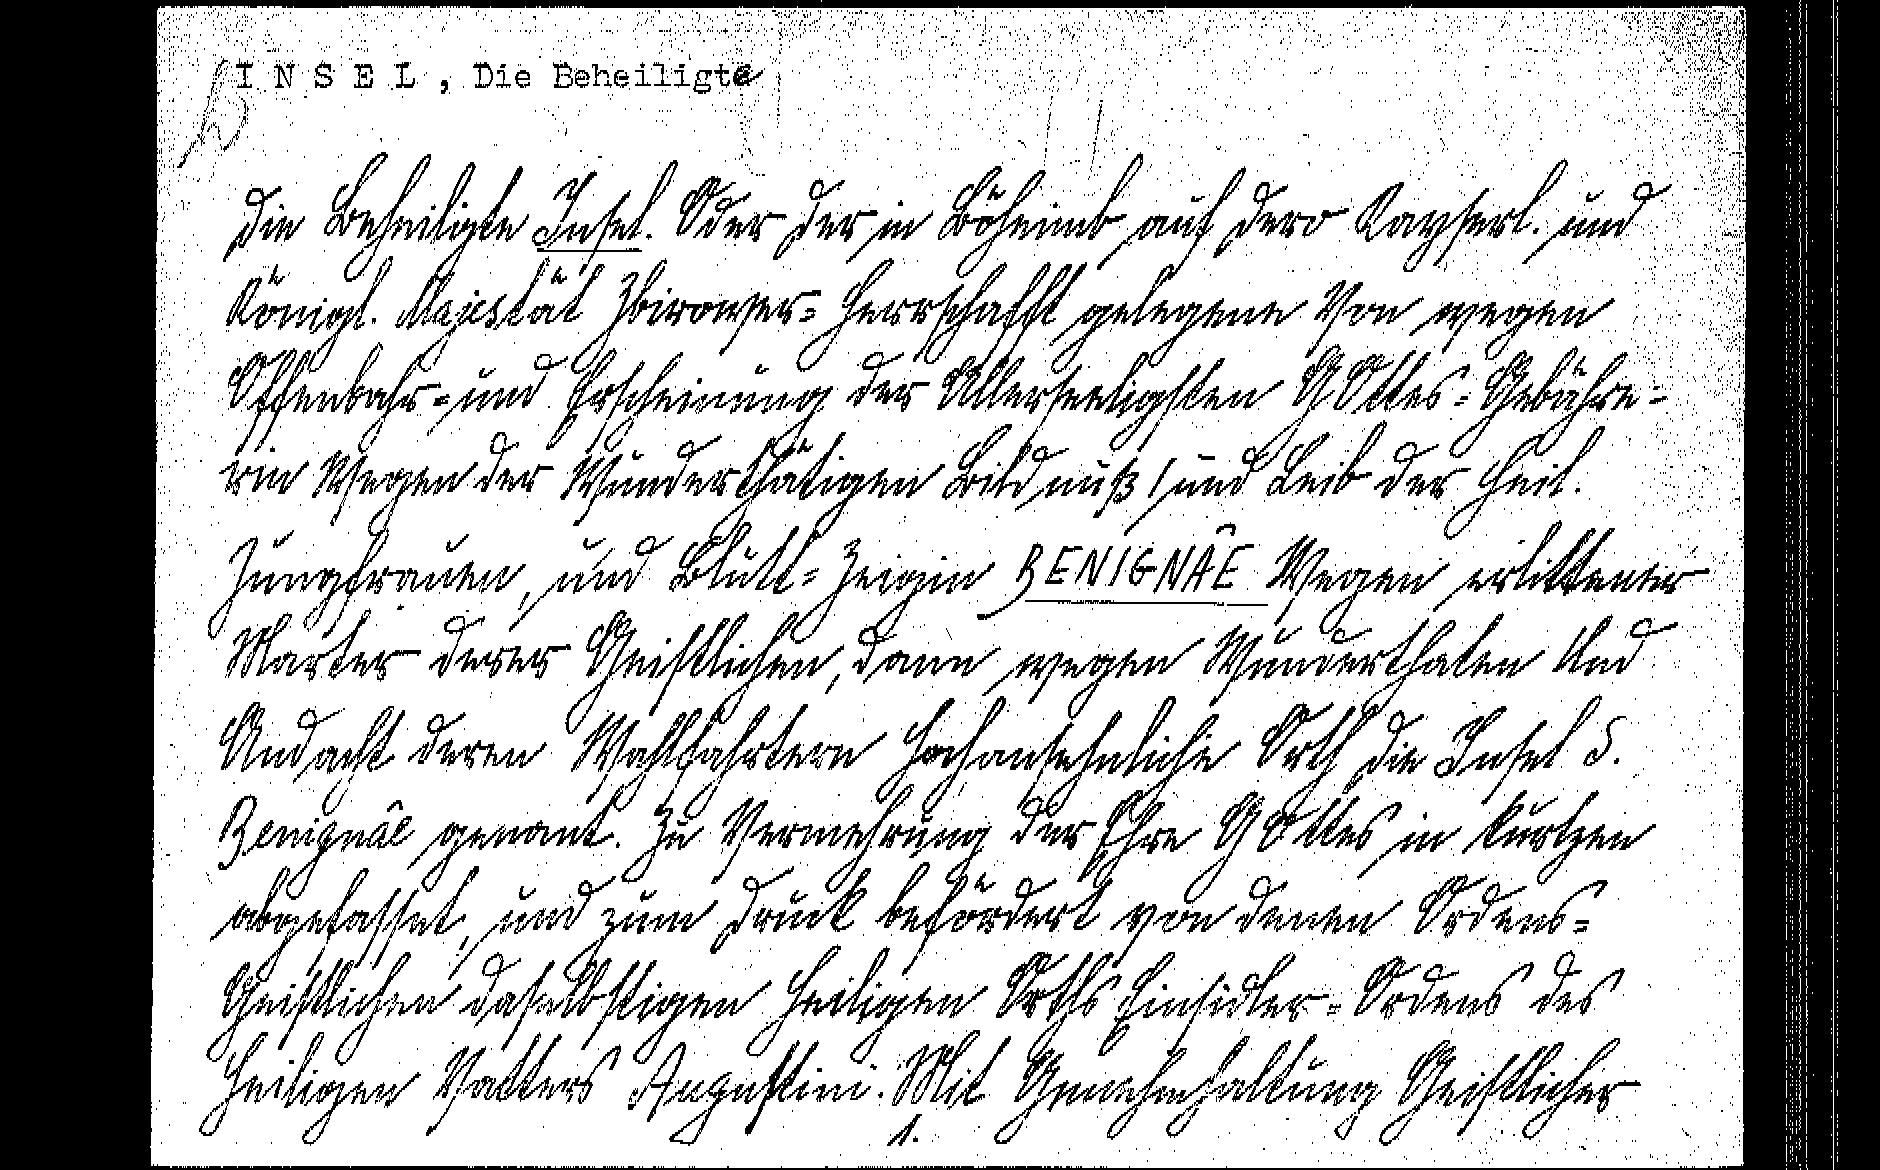 INSEL, Die Beheiligte
Die Beheiligte Insel. Oder der in Böheimb auf dero Kayserl. und
Königl. Majestät Zbirower= Herrschafft gelegene Von wegen
Offenbahr= und Erscheinung der Allerseeligsten GOttes= Gebähre=
rin Wegen der Wunderthätigen Bildnuß / und Leib der Heil.
Jungfrauen, und Blutt= Zeigin BENIGNÂE Wegen erlittener
Marter derer Geistlichen, dann wegen Wunderthaten Und
Andacht deren Wahlfahrtern Hochansehnliche Orth die Insel S.
Benignâe genant. Zu Vermehrung der Ehre GOttes in kurtzen
abgefasset, und zum Druck befördert von denen Ordens=
Geistlichen daselbstigen Heiligen Orths Einsidler= Ordens des
Heiligen Vatters Augustini. Mit Genehmhaltung Geistlicher
1.